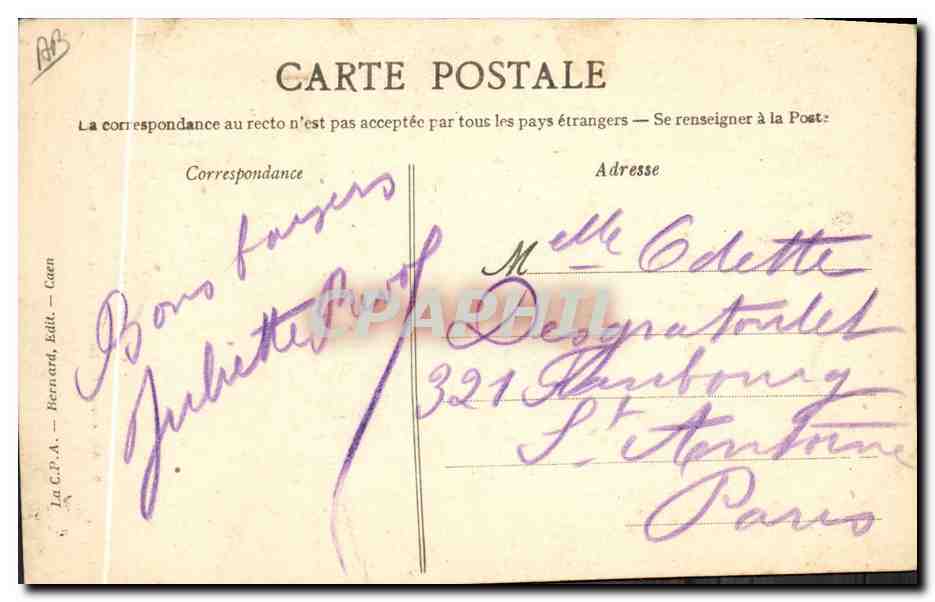 AB
CARTE POSTALE
La correspondance au recto n'est pas acceptée par tous les pays étrangers — Se renseigner à la Poste
Correspondance
Adresse
Bons baisers
Juliette
Melle Odette
Desgratoulet
321 Faubourg
St Antoine
Paris
La C.P.A. — Bernard, Edit. — Caen
CPAPHIL